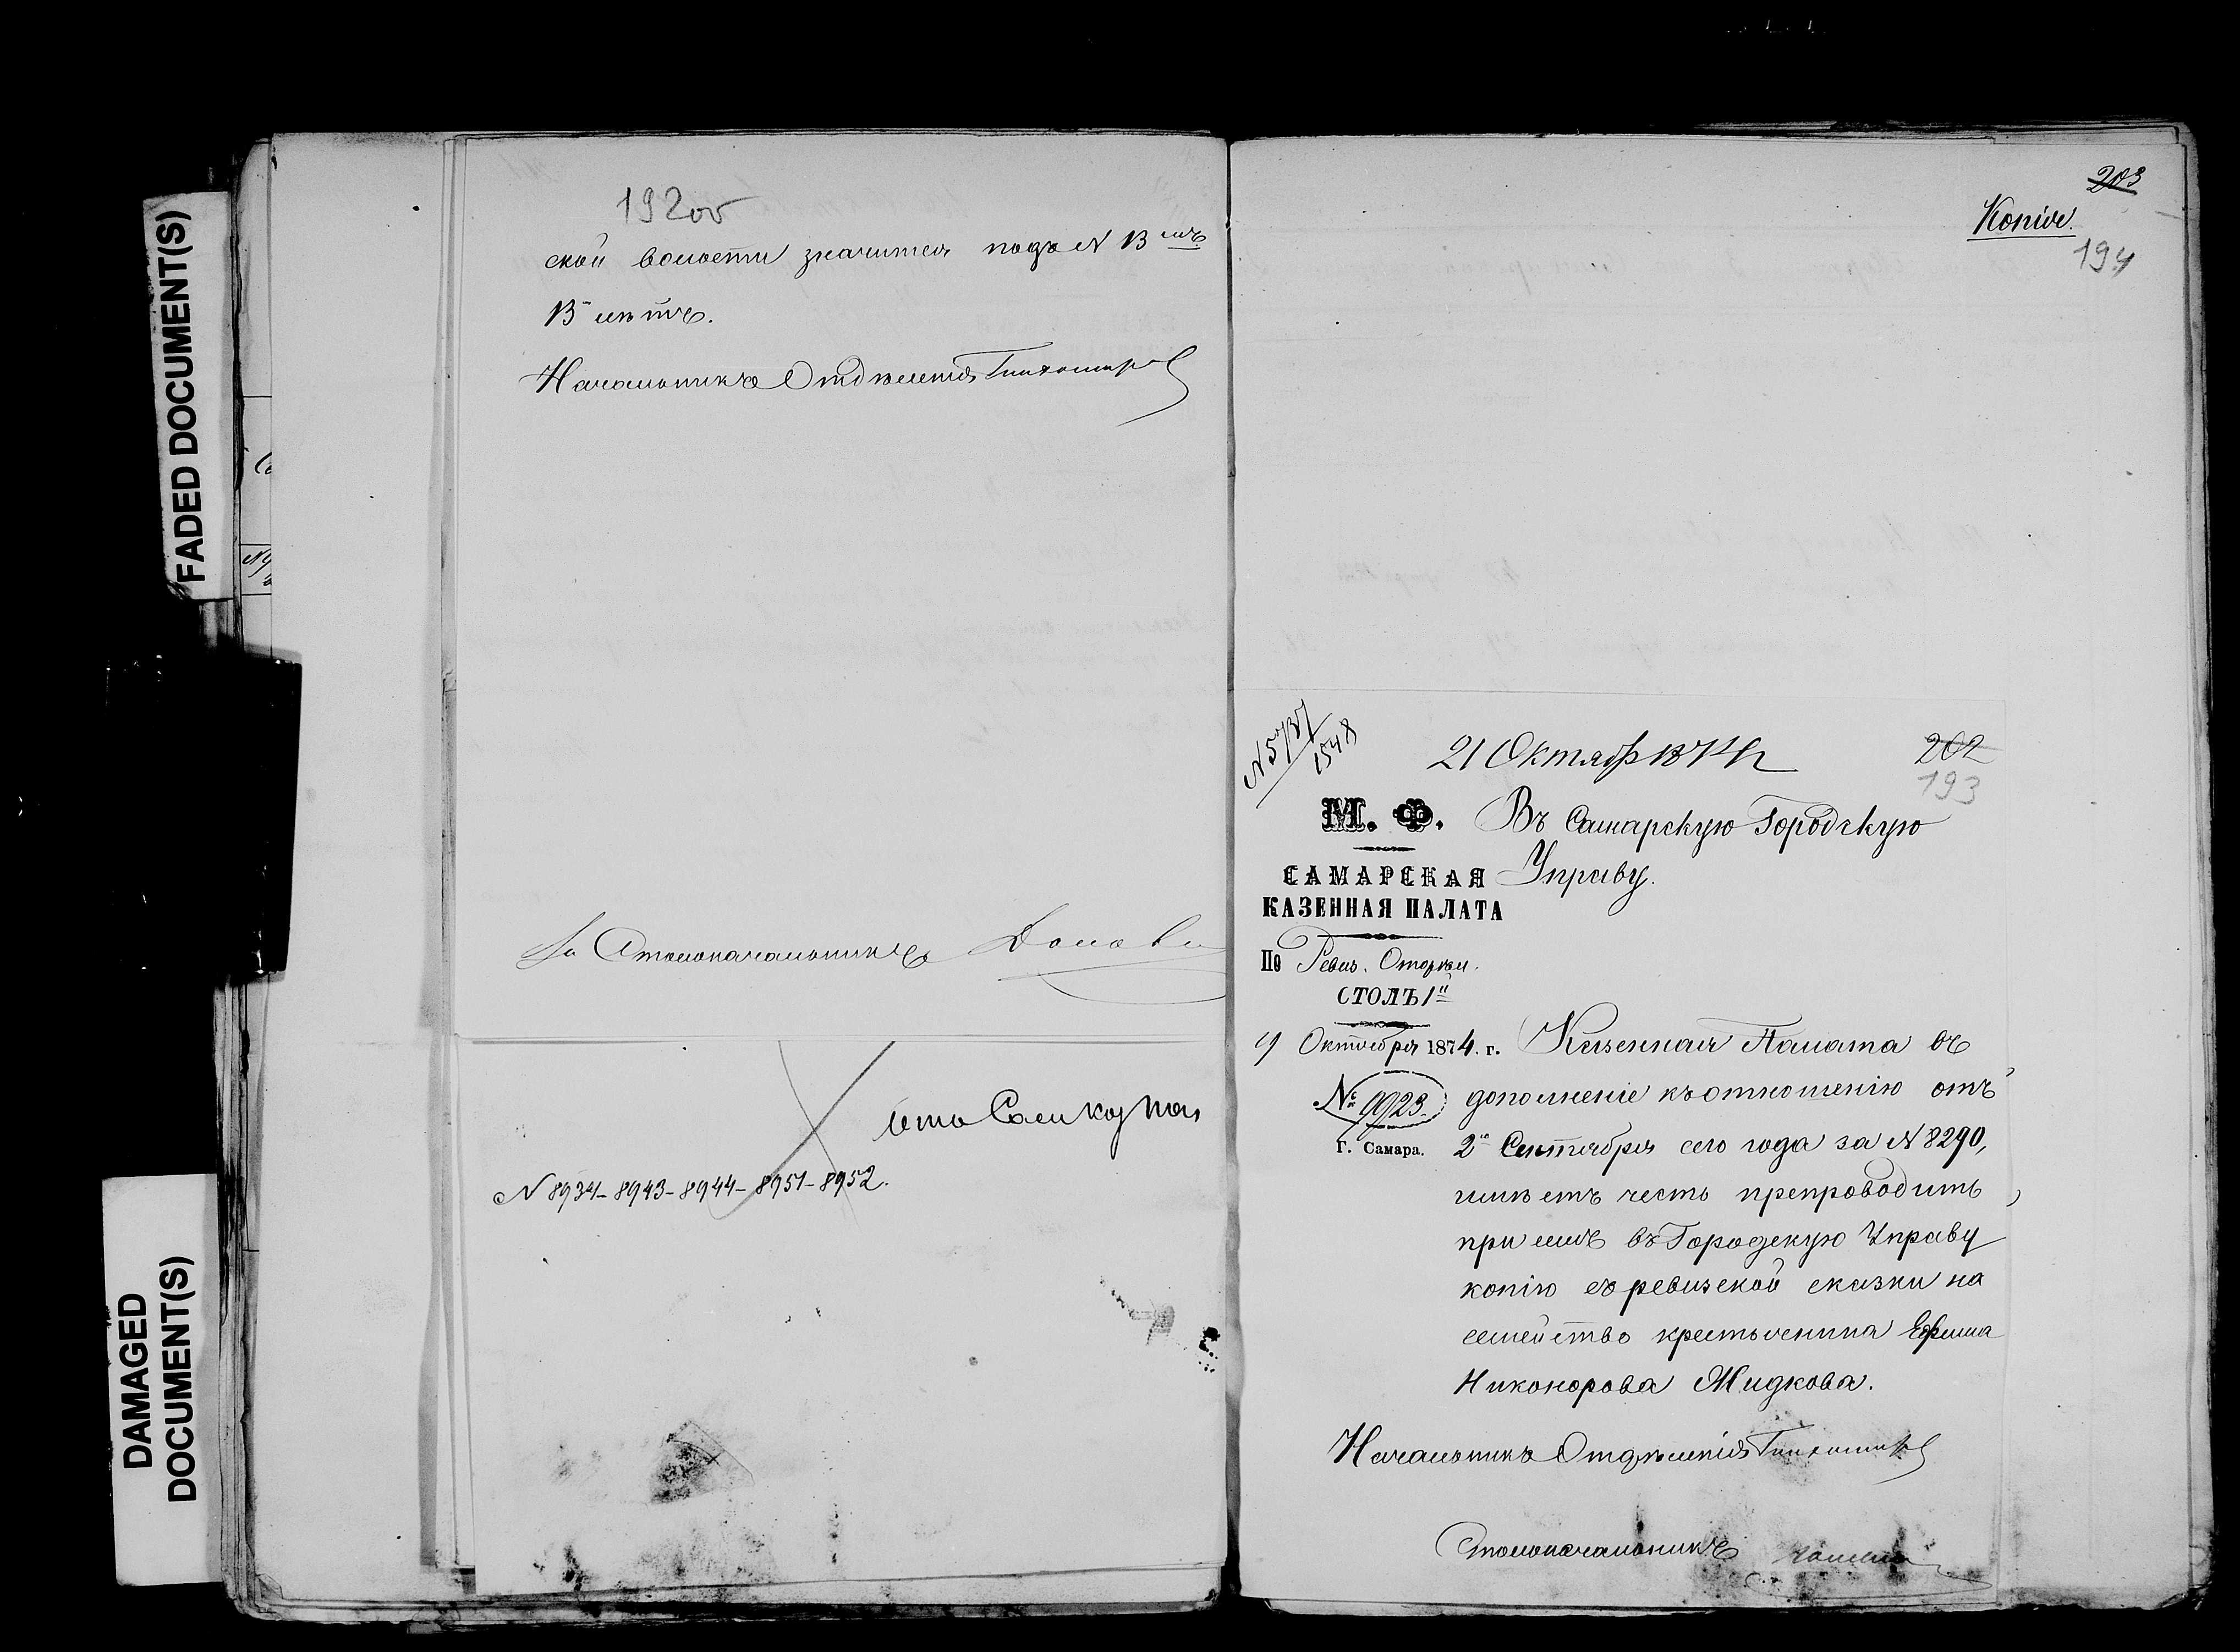 FADED DOCUMENT(S)
DAMAGED
DOCUMENT(S)
192об
ской волости значится подъ N 13 мъ
13 лѣтъ.
Начальникъ Отдѣленія Тихомиров
За Столоначальника
N 8934- 8943- 8944- 8951- 8952.
203
Копія.
194
N 5737
1548
21 Октябр 1874 г
202
193
М. Ф.
Въ Самарскую Городскую
Управу.
САМАРСКАЯ
КАЗЕННАЯ ПАЛАТА
По Ревиз.
СТОЛЪ 1й
19 Октября 1874. г.
№ 9923.
г. Самара.
Казенная Палата въ
дополненіе къ отношенію отъ
2го Сентября сего года за N 8290,
имѣетъ честь препроводить
при семъ въ Городскую Управу
копію съ ревизской сказки на
семейство крестьянина Ефима
Никонорова Жидкова.
Начальникъ Отдѣленія Тихомиров
Столоначальникъ